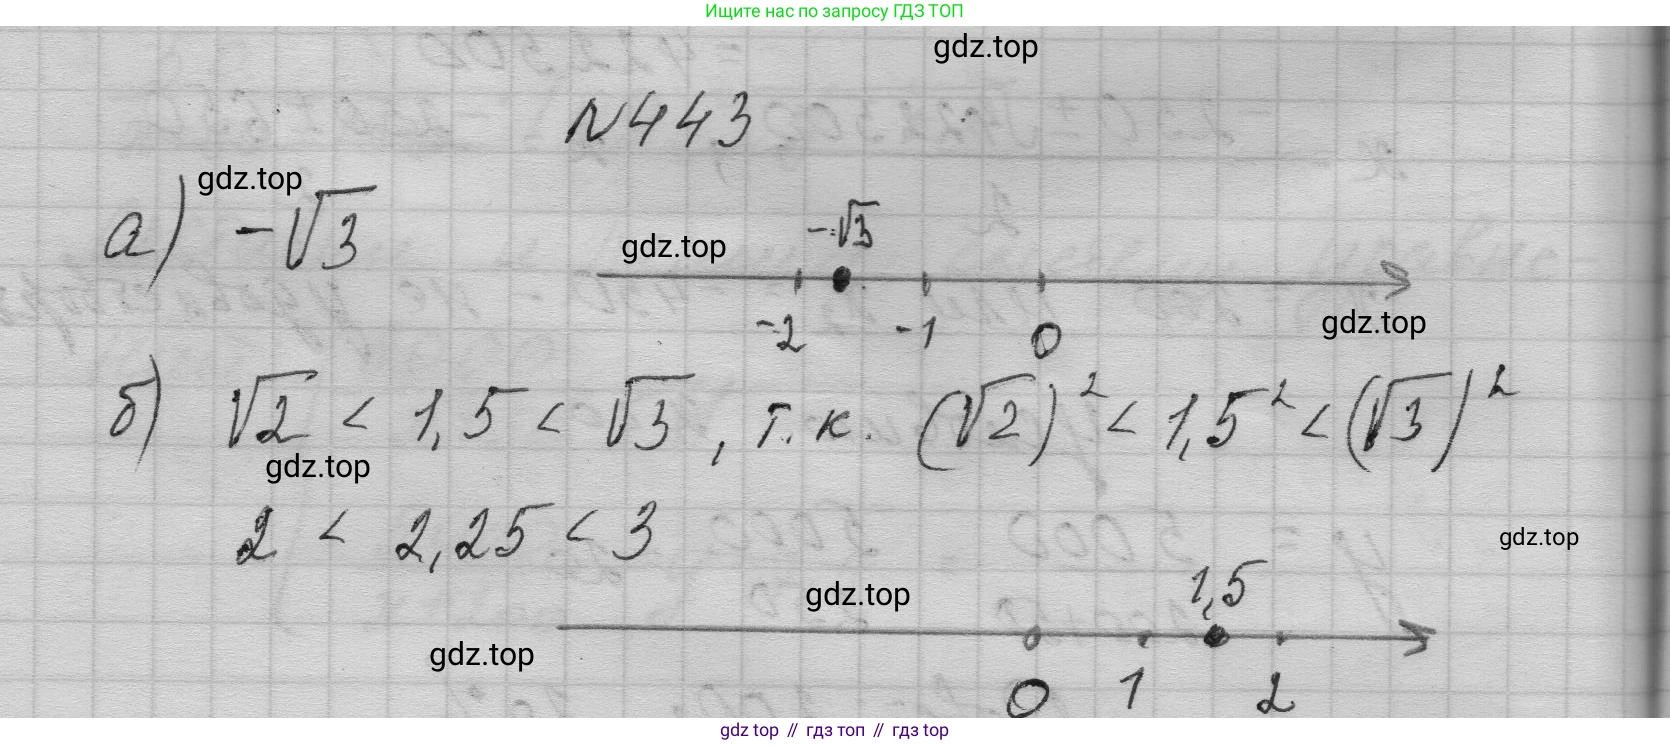 Ищите нас по запросу ГДЗ ТОП
gdz.top
N443
gdz.top
а) -√3
gdz.top
-√3
-2 -1 0
gdz.top
б) √2 < 1,5 < √3, т.к. (√2)² < 1,5² < (√3)²
gdz.top
2 < 2,25 < 3
gdz.top
1,5
gdz.top
gdz.top
0 1 2
gdz top // гдз топ // гдз top